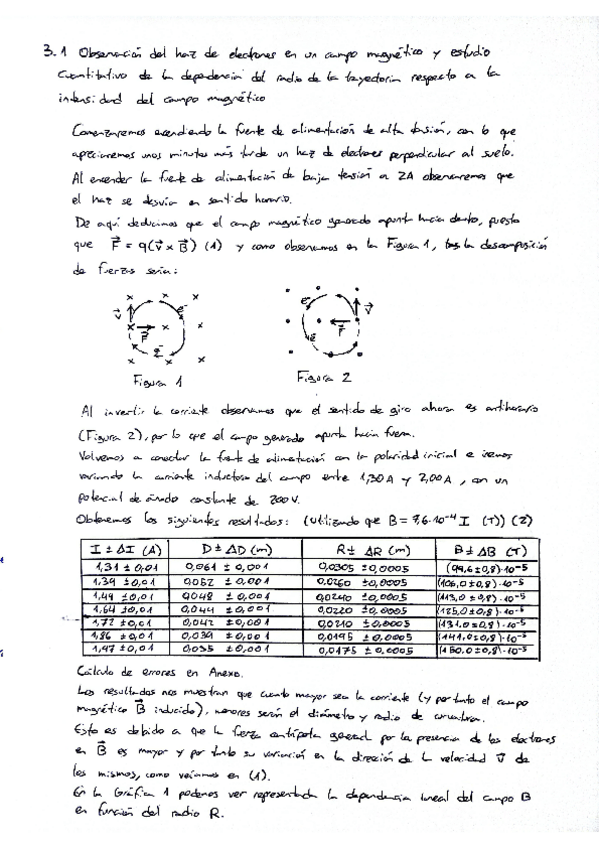 3.1 Observación del haz de electrones en un campo magnético y estudio
cuantitativo de la dependencia del radio de la trayectoria respecto a la
intensidad del campo magnético
Comenzaremos encendiendo la fuente de alimentación de alta tensión, con lo que
apreciaremos unos minutos más tarde un haz de electrones perpendicular al suelo.
Al encender la fuente de alimentación de baja tensión a 2A observaremos que
el haz se desvía en sentido horario.
De aquí deducimos que el campo magnético generado apunta hacia dentro, puesto
que F⃗ = q(v⃗ x B⃗) (1) y como observamos en la Figura 1, la descomposición
de fuerzas sería:
v⃗ F⃗ e⁻ e⁻
e⁻ e⁻ F⃗ v⃗
Figura 1
Figura 2
Al invertir la corriente observamos que el sentido de giro ahora es antihorario
(Figura 2), por lo que el campo generado apunta hacia fuera.
Volvemos a conectar la fuente de alimentación con la polaridad inicial e iremos
variando la corriente inductora del campo entre 1,30A y 2,00A, con un
potencial de ánodo constante de 200V.
Obtenemos los siguientes resultados: (utilizando que B = 7,6·10⁻⁴ I (T)) (2)
I ± ΔI (A) D ± ΔD (m) R ± ΔR (m) B ± ΔB (T)
1,31 ± 0,01 0,061 ± 0,001 0,0305 ± 0,0005 (99,6 ± 0,8)·10⁻⁵
1,39 ± 0,01 0,052 ± 0,001 0,0260 ± 0,0005 (106,0 ± 0,8)·10⁻⁵
1,49 ± 0,01 0,048 ± 0,001 0,0240 ± 0,0005 (113,0 ± 0,8)·10⁻⁵
1,64 ± 0,01 0,044 ± 0,001 0,0220 ± 0,0005 (125,0 ± 0,8)·10⁻⁵
1,72 ± 0,01 0,042 ± 0,001 0,0210 ± 0,0005 (131,0 ± 0,8)·10⁻⁵
1,86 ± 0,01 0,039 ± 0,001 0,0195 ± 0,0005 (141,0 ± 0,8)·10⁻⁵
1,97 ± 0,01 0,035 ± 0,001 0,0175 ± 0,0005 (150,0 ± 0,8)·10⁻⁵
Cálculo de errores en Anexo.
Los resultados nos muestran que cuanto mayor sea la corriente (y por tanto el campo
magnético B⃗ inducido), menores serán el diámetro y radio de curvatura.
Esto es debido a que la fuerza centrípeta general por la presencia de los electrones
en B⃗ es mayor y por tanto su variación en la dirección de la velocidad v⃗ de
los mismos, como veíamos en (1).
En la Gráfica 1 podemos ver representada la dependencia lineal del campo B
en función del radio R.